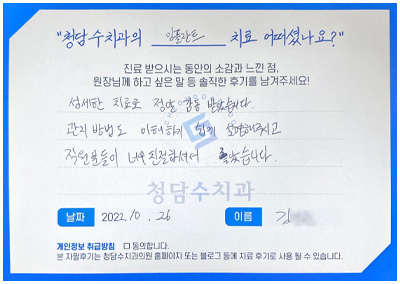 "청담수치과의 임플란트 치료 어떠셨나요?"
진료 받으시는 동안의 소감과 느낀 점,
원장님께 하고 싶은 말 등 솔직한 후기를 남겨주세요!
섬세한 진료로 정말 감동 받았습니다.
관리 방법도 이해하기 쉽게 설명해주시고
직원분들이 너무 친절하셔서 좋았습니다.
청담수치과
날짜 2022. 10. 26 이름 김
개인정보 취급방침 ☐ 동의합니다.
본 자필후기는 청담수치과의원 홈페이지 또는 블로그 등에 치료 후기로 사용 될 수 있습니다.